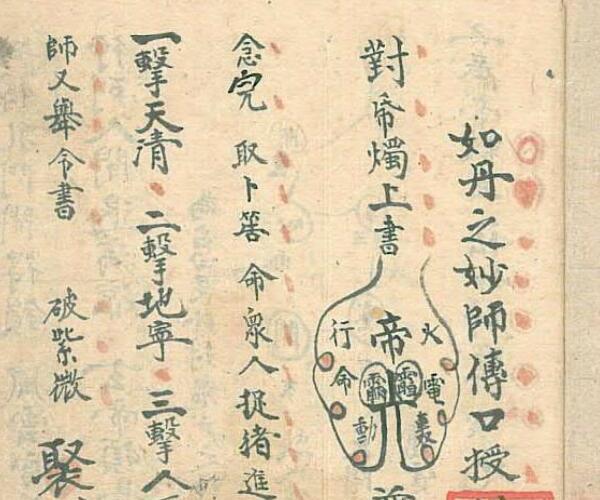 如丹之妙師傳口授
對帝燭上書 帝
火電轟
行命動
念完 取卜筶 命眾人捉猪進
一擊天清 二擊地寧 三擊人
師又舉令書 破紫微